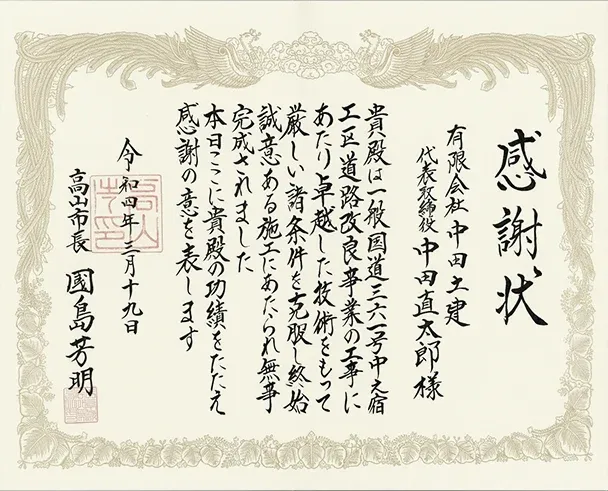 感謝状
有限会社中田土建
代表取締役 中田直太郎様
貴殿は一般国道三六一号中之宿
工区道路改良事業の工事に
あたり卓越した技術をもって
厳しい諸条件を克服し終始
誠意ある施工にあたられ無事
完成されました
本日ここに貴殿の功績をたたえ
感謝の意を表します
令和四年三月十九日
高山市長 國島芳明